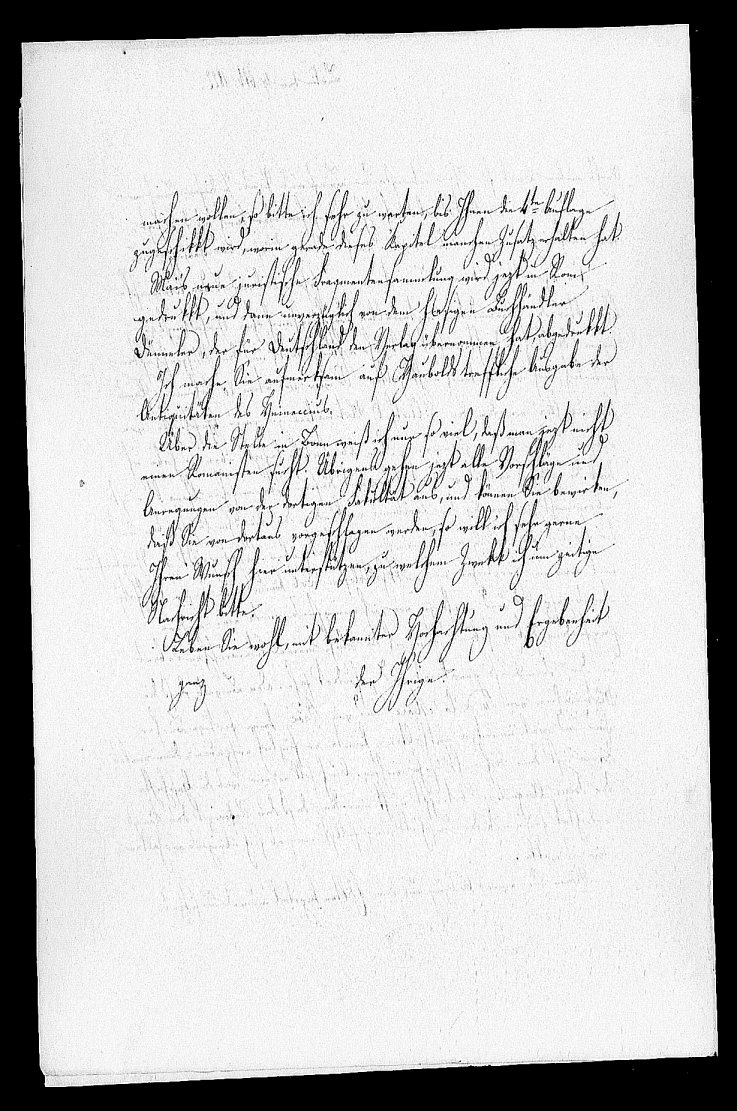 machen wollen, so bitte ich sehr zu warten, bis Ihnen die 4te Auflage
zugeschikkt wird, worin gerade dieses Kapitel manchen Zusatz erhalten hat.
Mais neue juristische Fragmentensammlung wird jezt in Rom
gedrukkt, und dann unverzüglich von dem hiesigen Buchhändler
Dümmler, der für Deutschland den Verlag übernommen hat, abgedrukkt.
Ich mache Sie aufmerksam auf Haubolds treffliche Ausgabe der
Antiquitäten des Heineccius.
Über die Stelle in Bonn weiß ich nur so viel, daß man jezt nicht
einen Romanisten sucht. Übrigens gehen jezt alle Vorschläge und
Anregungen von der dortigen Fakultät aus, und können Sie bewirken,
daß Sie von dortaus vorgeschlagen werden, so will ich sehr gerne
Ihren Wunsch hier unterstützen, zu welchem Zwekk ich um zeitige
Nachricht bitte.
Leben Sie wohl, mit bekannter Hochachtung und Ergebenheit
ganz der Ihrige.